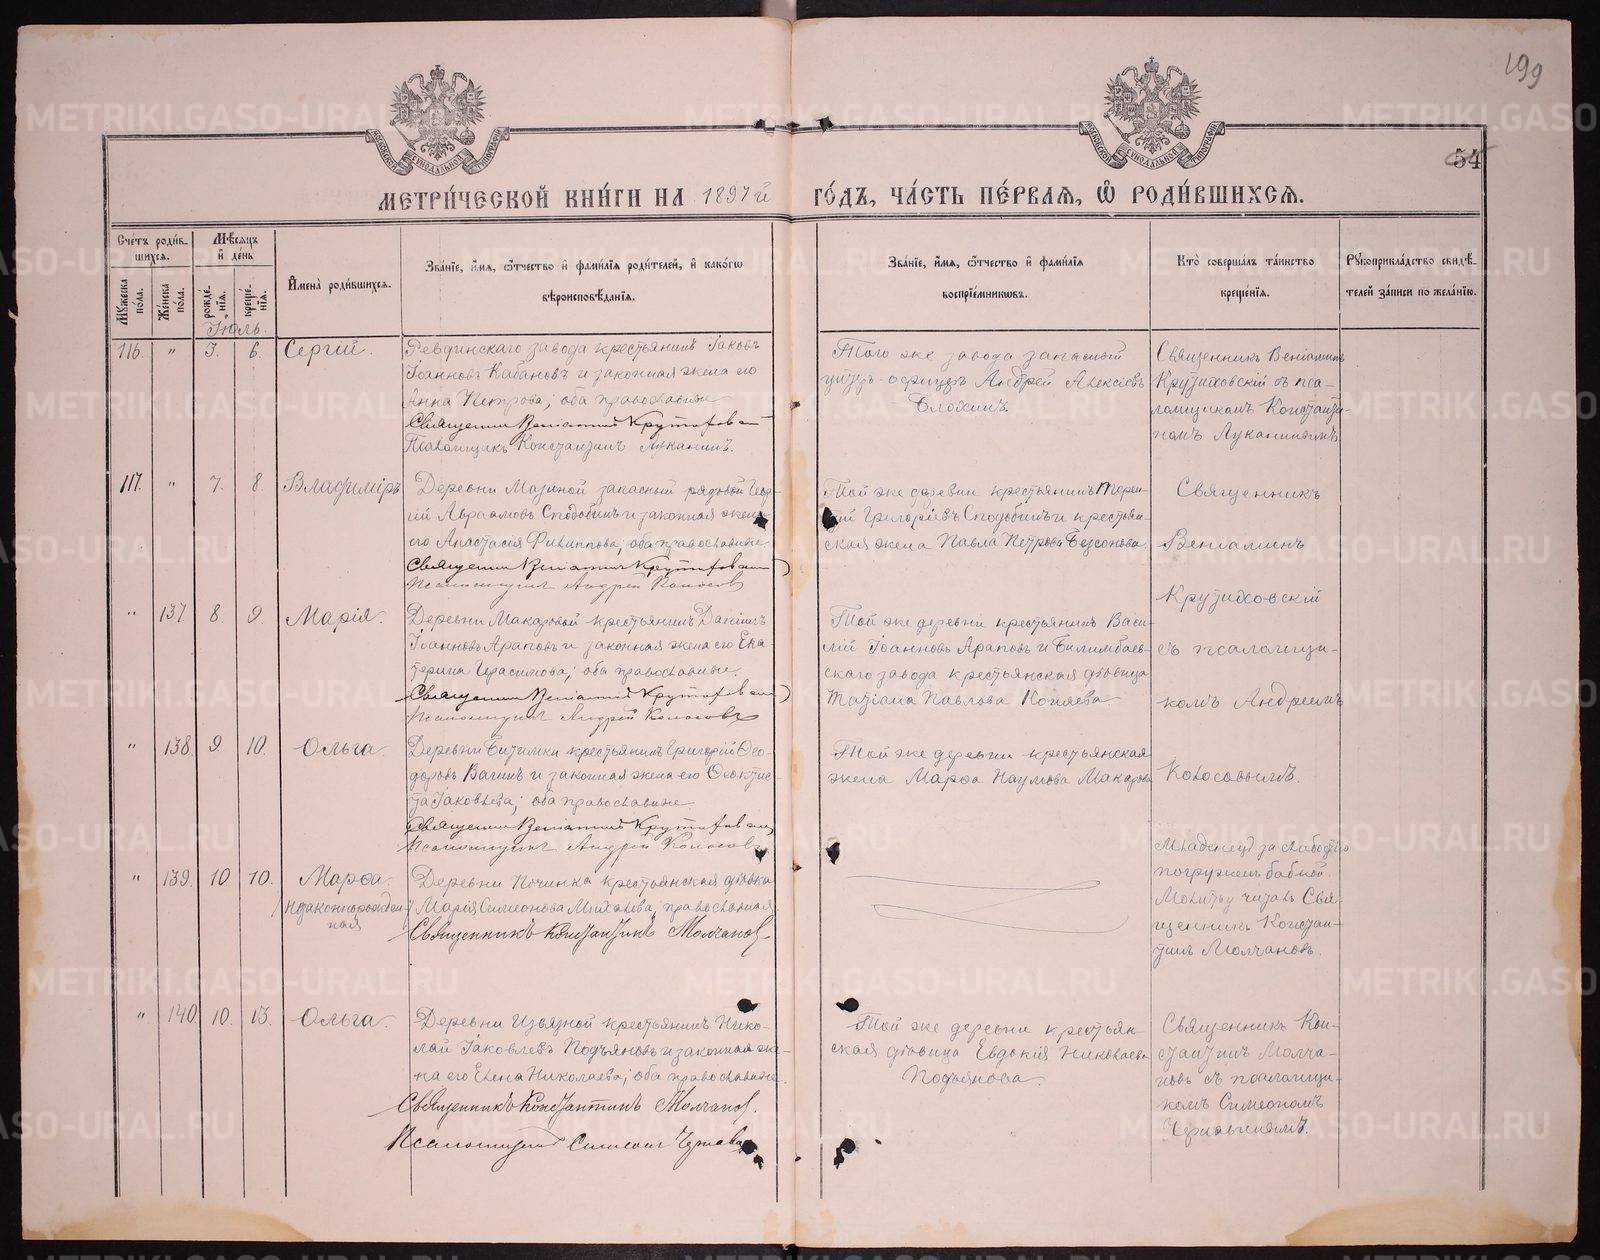 199
54
МЕТРИ́ЧЕСКОЙ КНИ́ГИ НА 1897й ГО́ДЪ, ЧА́СТЬ ПЕ́РВАЯ, Ѡ҆ РОДИ́ВШИХСЯ.
Сче́тъ роди́в-
шихся.
Мѣ́сяцъ
и҆ де́нь
Мꙋ́жеска
пола.
Же́нска
по́ла.
рожде́-
нїя.
креще́-
нїя.
И҆мена̀ роди́вшихся.
Зва́нїе, и҆́мя, ѻ҆́тчество и҆ фами́лїя роди́телей, и҆ како́гѡ
вѣроисповѣ́данїя.
Зва́нїе, и҆́мя, ѻ҆́тчество и҆ фами́лїя
воспрїе́мникѡвъ.
Кто̀ соверша́лъ та́инство
креще́нїя.
Рꙋкоприкла́дство свидѣ́-
телей за́писи по жела́нїю.
Іюль.
116. " 3. 6. Сергій.
Ревдинскаго завода крестьянинъ Іаковъ
Іоанновъ Кабановъ и законная жена его
Анна Петрова; оба православные
Священникъ Веніаминъ Крутиховскій
Псаломщикъ Константинъ Луканинъ.
Того же завода запасный
унтеръ-офицеръ Андрей Алексіевъ
Блохинъ.
Священникъ Веніаминъ
Крутиховскій съ пса-
ломщикомъ Константи-
номъ Луканинымъ.
117. " 7. 8. Владиміръ
Деревни Мазиной запасный рядовой Геор-
гій Авраамовъ Сподобинъ и законная жена
его Анастасія Филиппова; оба православные.
Священникъ Веніаминъ Крутиховскій
Псаломщикъ Андрей Колосовъ
Той же деревни крестьянинъ
Григоріевъ Сподобинъ и крестьян-
ская жена Павла Петрова Безсонова.
Священникъ
Веніаминъ
Крутиховскій
съ псаломщи-
комъ Андреемъ
Колосовымъ.
" 137 8. 9. Марія.
Деревни Макаровой крестьянинъ Даніилъ
Іоанновъ Араповъ и законная жена его Ека-
терина Герасимова; оба православные.
Священникъ Веніаминъ Крутиховскій
Псаломщикъ Андрей Колосовъ
Той же деревни крестьянинъ Васи-
лій Іоанновъ Араповъ и Билимбаев-
скаго завода крестьянская дѣвица
Татіана Павлова Копяева.
" 138. 9. 10. Ольга.
Деревни Битимки крестьянинъ Григорій Ѳео-
доровъ Вагинъ и законная жена его Ѳеоктис-
та Іаковлева; оба православные.
Священникъ Веніаминъ Крутиховскій
Псаломщикъ Андрей Колосовъ
Той же деревни крестьянская
жена Марѳа Наумова Макарова
" 139. 10. 10. Марѳа.
(незаконнорожден-
ная
Деревни Починка крестьянская дѣвка
Марія Симеонова Михалева, православная
Священникъ Константинъ Молчановъ
Младенецъ за слабостію
погруженъ бабкой.
Молитву читалъ Свя-
щенникъ Констан-
тинъ Молчановъ.
" 140. 10. 13. Ольга.
Деревни Извязной крестьянинъ Нико-
лай Іаковлевъ Подъяновъ и законная же-
на его Елена Николаева; оба православные.
Священникъ Константинъ Молчановъ.
Псаломщикъ Симеонъ
Той же деревни крестьян-
ская дѣвица Евдокія Николаева
Подъянова.
Священникъ Кон-
стантинъ Молча-
новъ съ псаломщи-
комъ Симеономъ